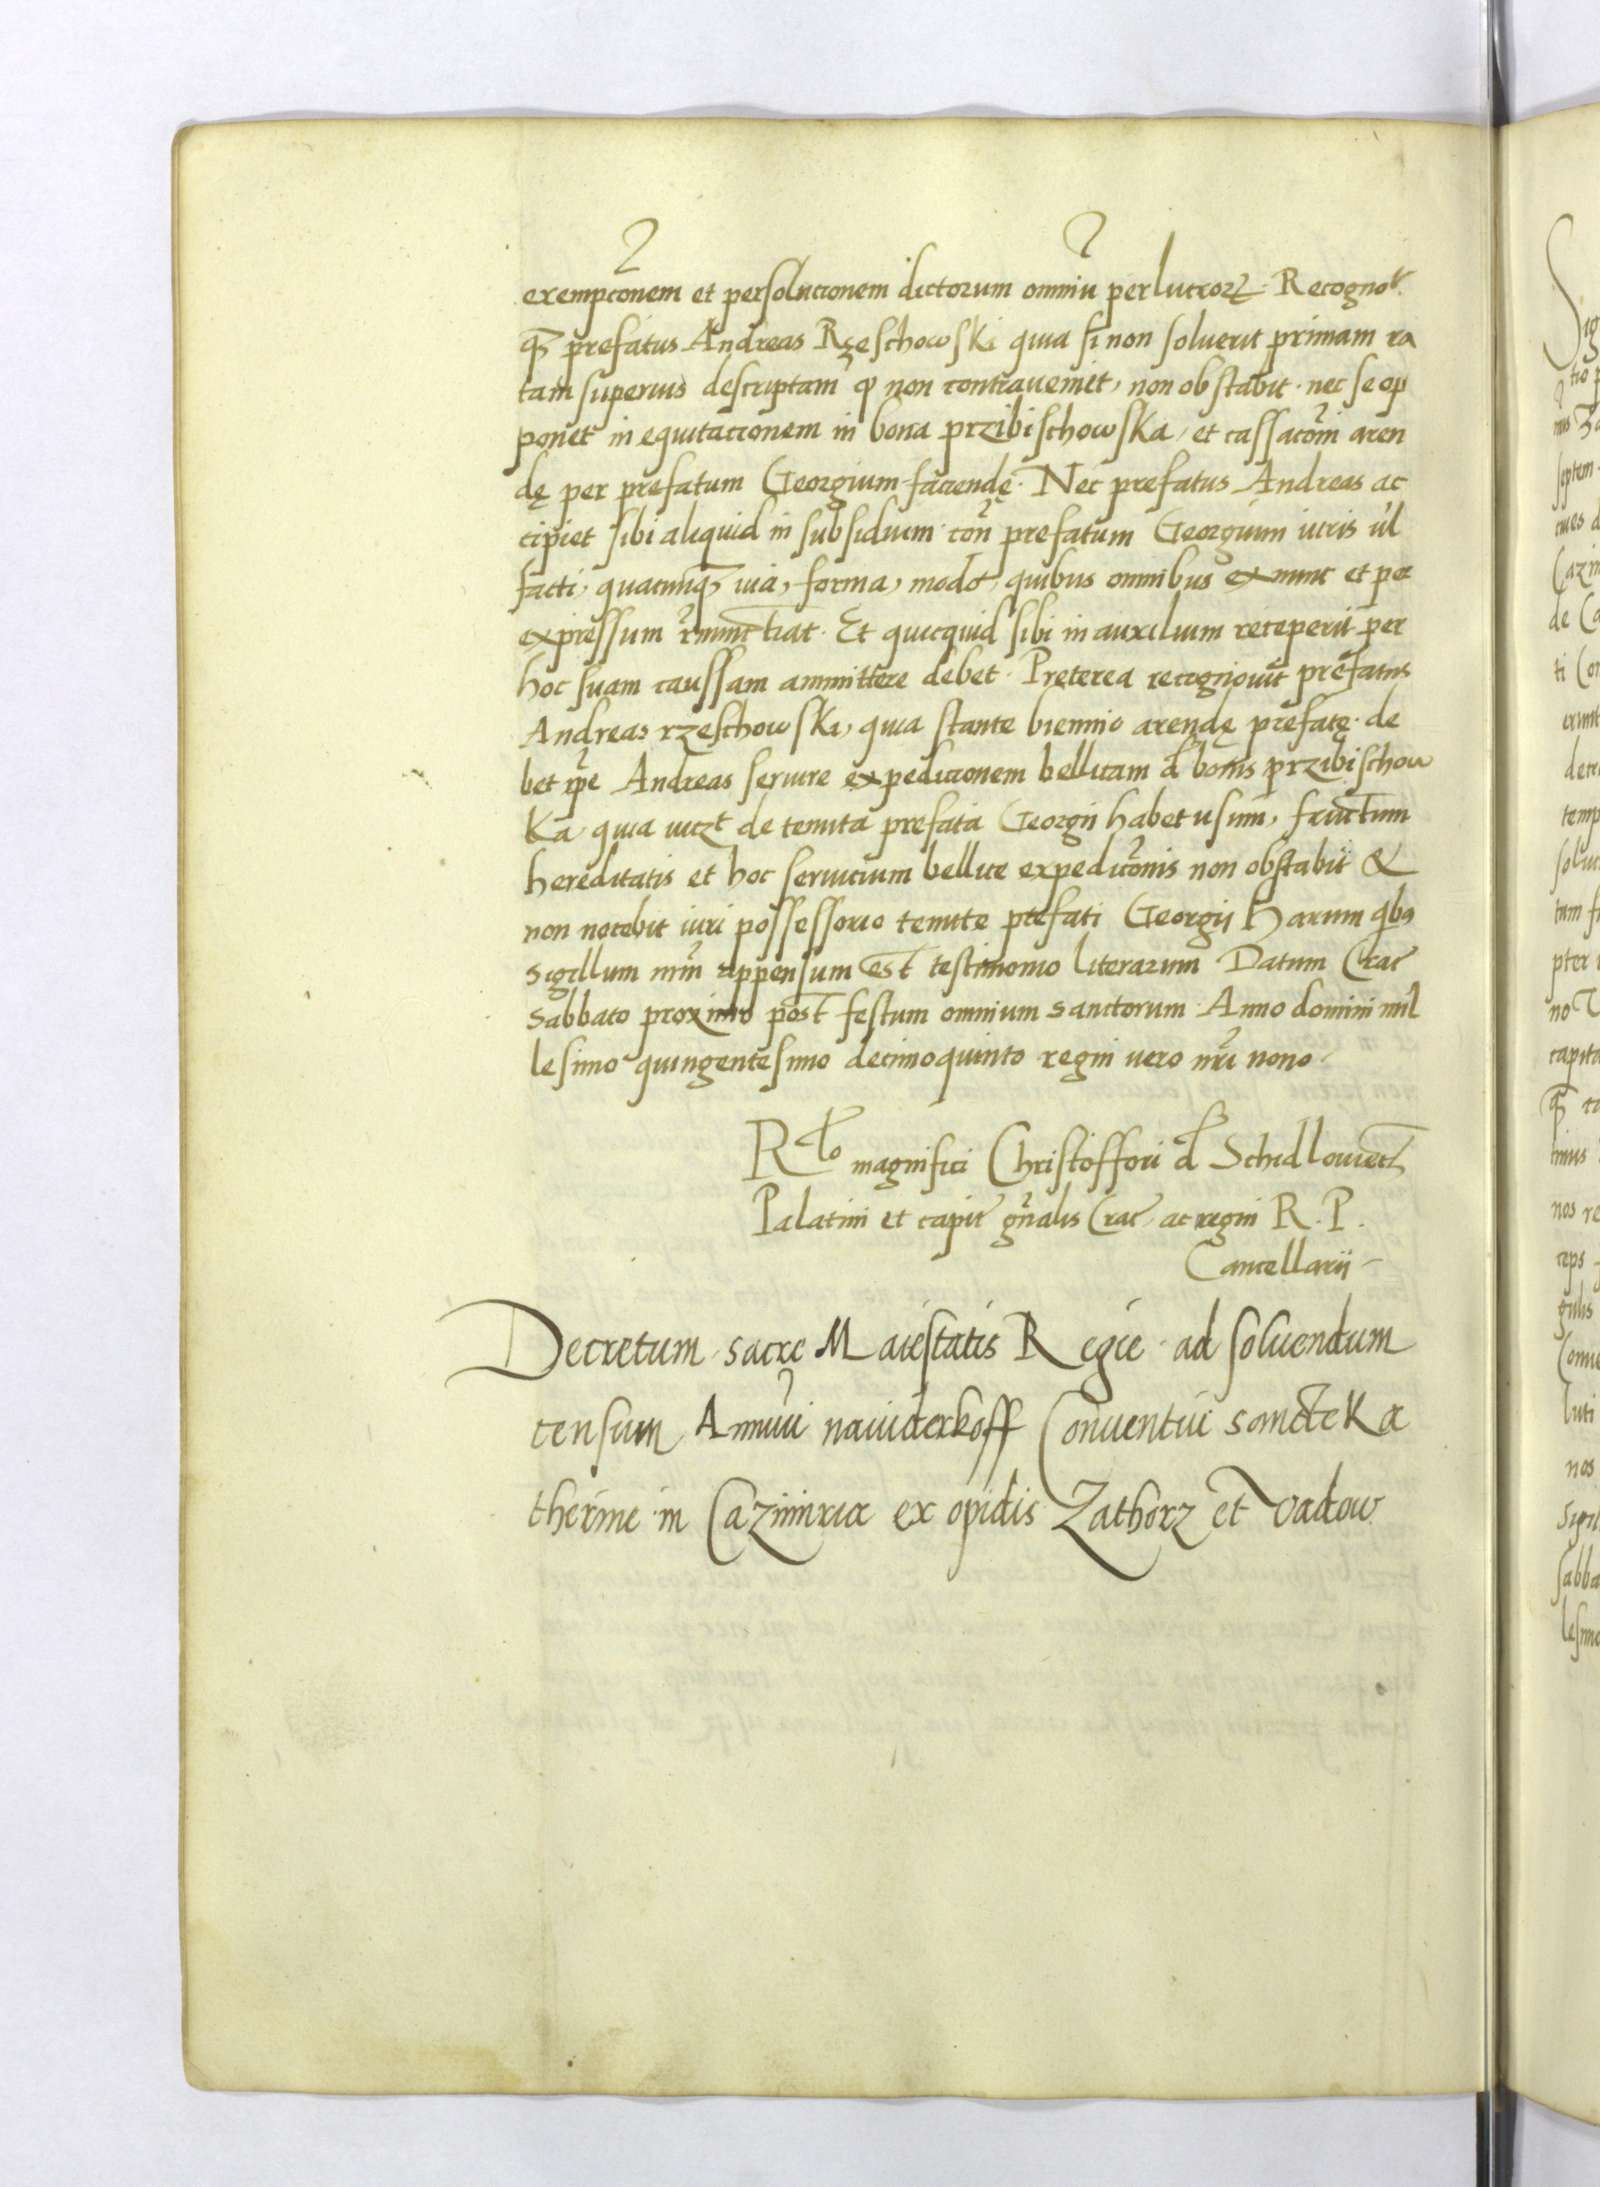 exempcōnem et persolucionem dictorum omniū perlucrorꝝ. Recognoᵗ
qꝫ prefatus Andreas Rzeschowski quia si non soluerit primam ra
tam superius descriptam ꝙ non contraueniet, non obstabit. nec se op
ponet in equitacionem in bona przibischowska, et cassacōni aren
dę per prefatum Georgium faciendę. Nec prefatus Andreas ac
cipiet sibi aliquid in subsidium con̄ prefatum Georgium iuris ul̄
facti, quacumqꝫ via, forma, modo, quibus omnibus exnunc et per
expressum r̄nunctiat. Et quicquid sibi in auxilium receperit per
hoc suam caussam ammittere debet. Preterea recognouit prefatus
Andreas rzeschowski, quia stante biennio arendę prefatę. de
bet ip̄e Andreas seruire expedicionem bellicam d̄ bonis przibischow
ka quia viczᵗ de tenuta prefata Georgii habet usum, fructum
hereditatis et hoc seruicium bellice expedicōnis non obstabit &
non nocebit iuri possessorio tenute prefati Georgij Harum qb9
sigillum nr̄m appensum est testimonio literarum Datum Crac̄
Sabbato proximo post festum omnium sanctorum Anno domini mil
lesimo quingentesimo decimoquinto regni vero nr̄i nono
Rᶫᵒ magnifici Christoffori d̄ Schidlowiecz
Palatini et capit̄ gn̄alis Crac̄ ac regni R. P.
Cancellarii
Decretum sacre Maiestatis Regie ad soluendum
censum Annuū Conuentui sancte Ka
therine in Cazimiria ex opidis Zathorz et Vadow